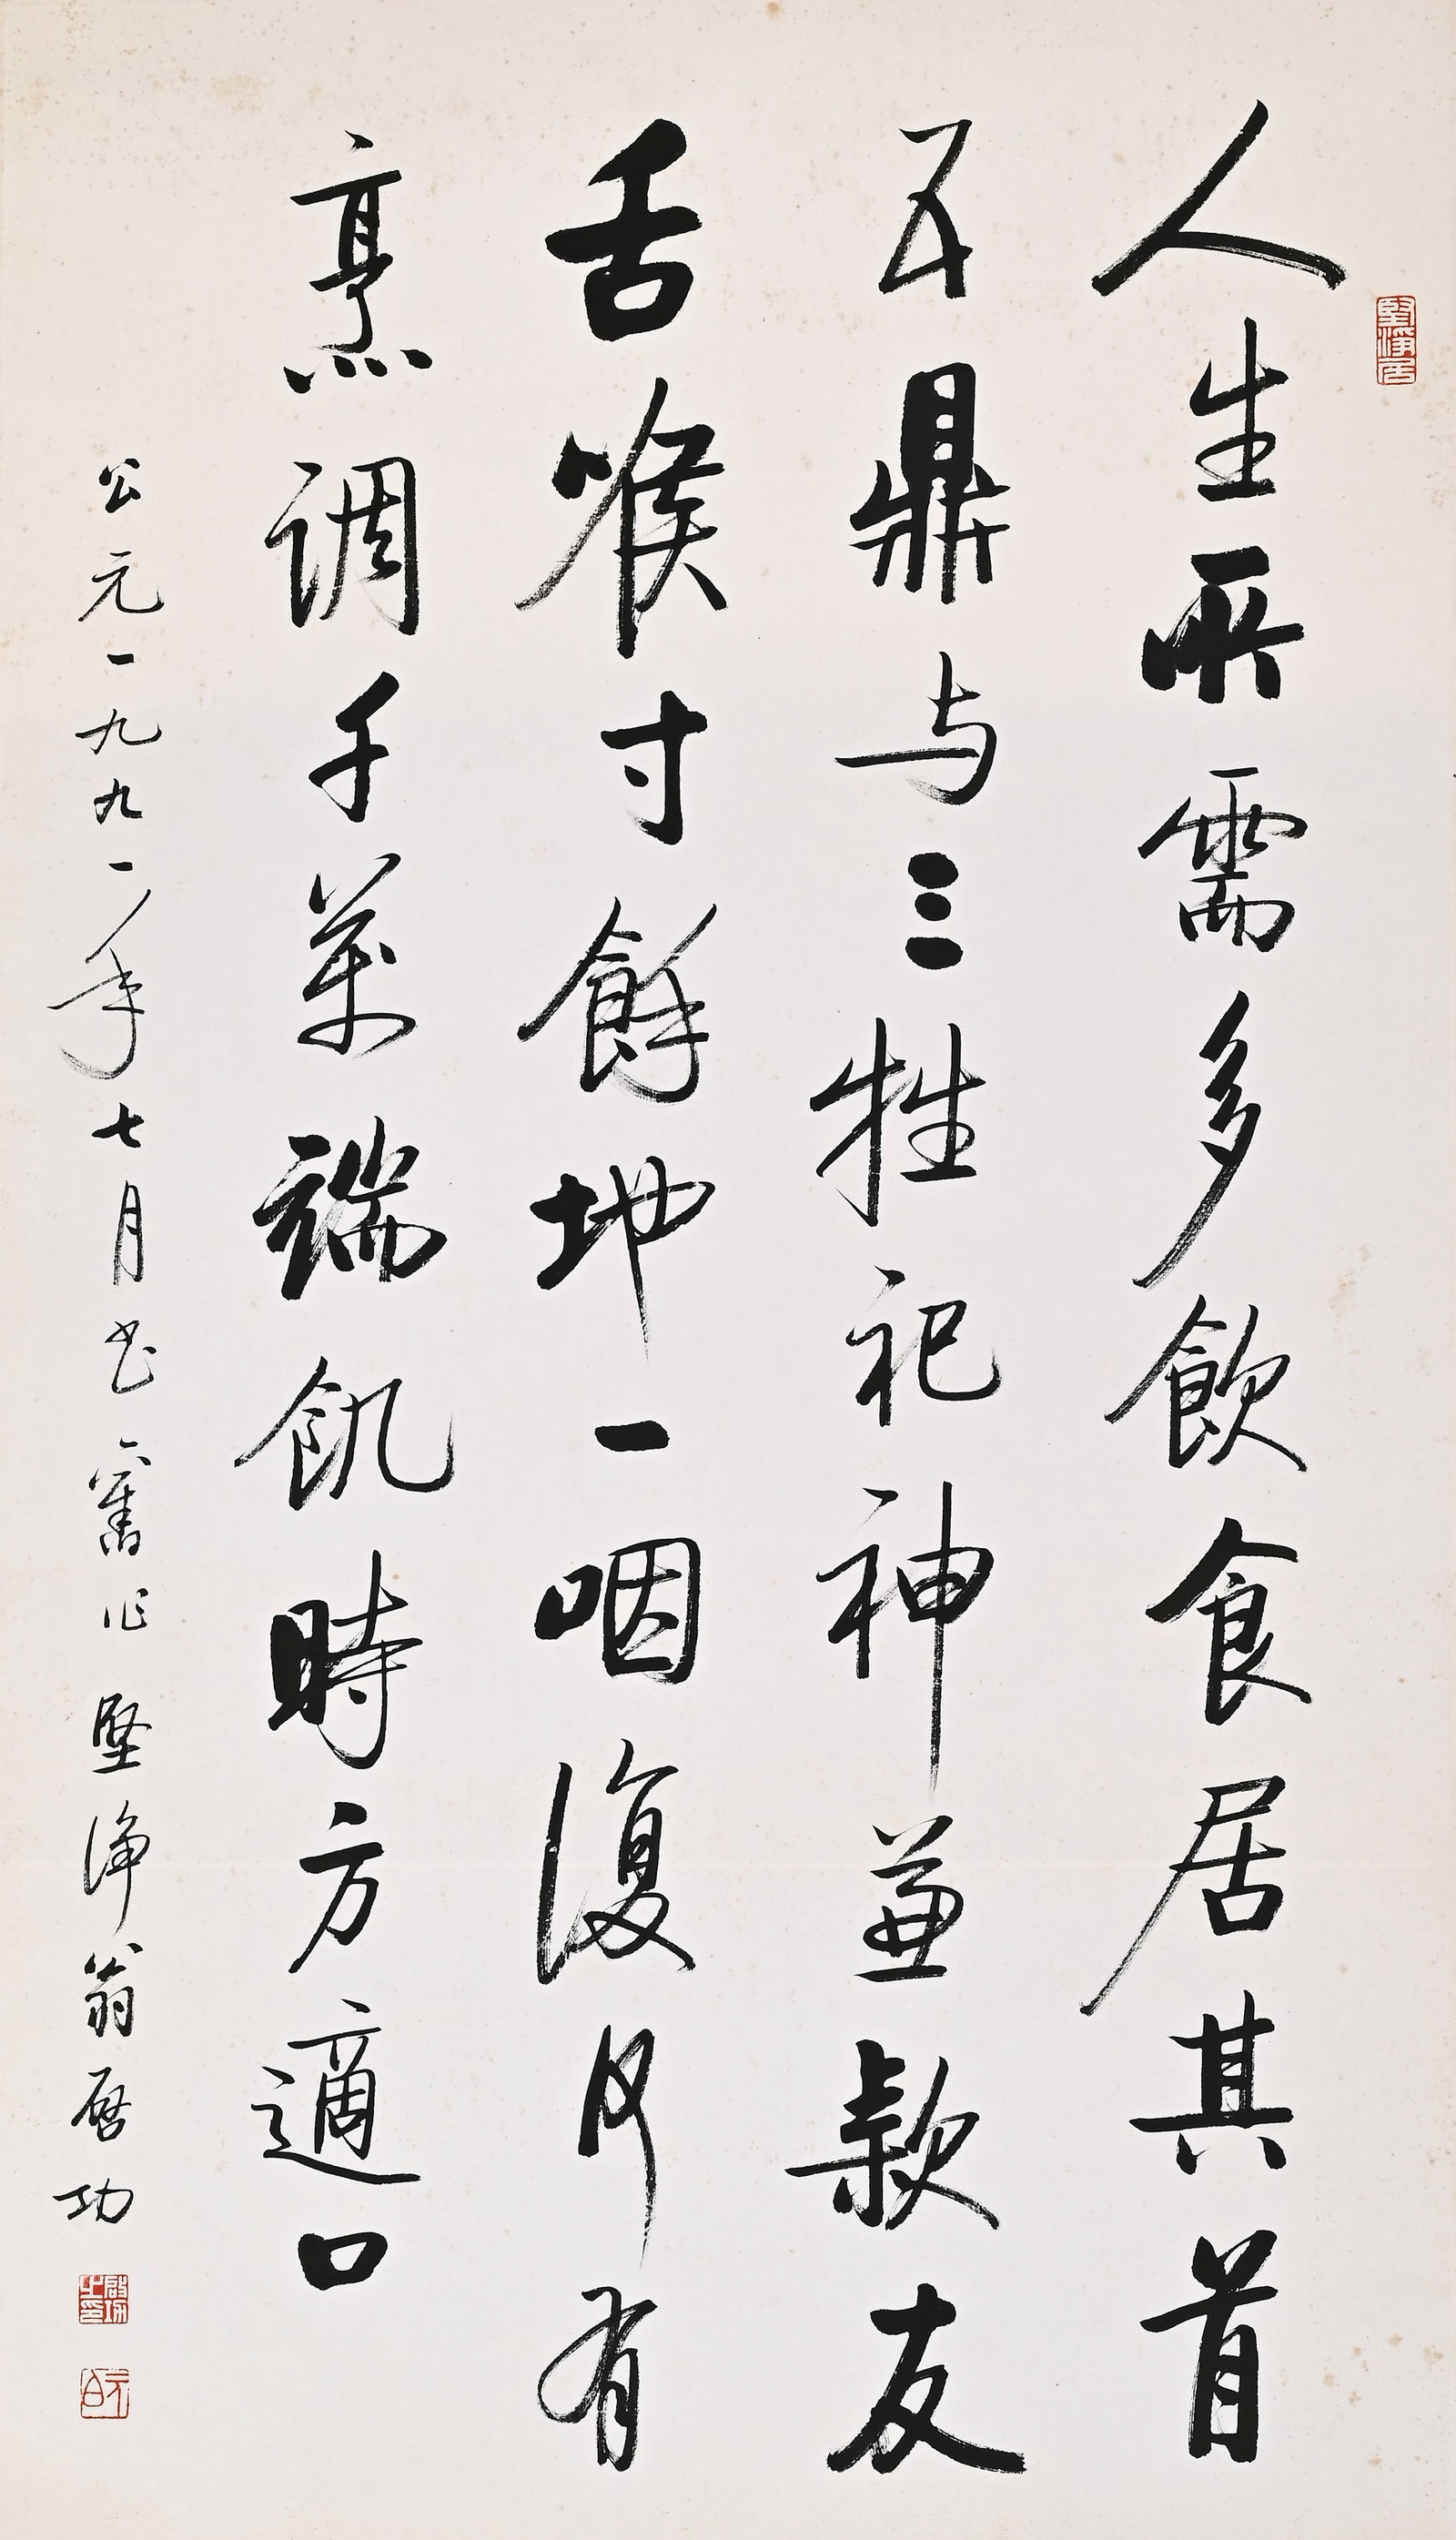 人生所需多飲食居其首
五鼎与三牲祀神兼款友
舌喉寸餘地一咽復何有
烹调千萬端飢時方適口
公元一九九一年七月书舊作 堅净翁启功
堅净居
啟功之印
元白